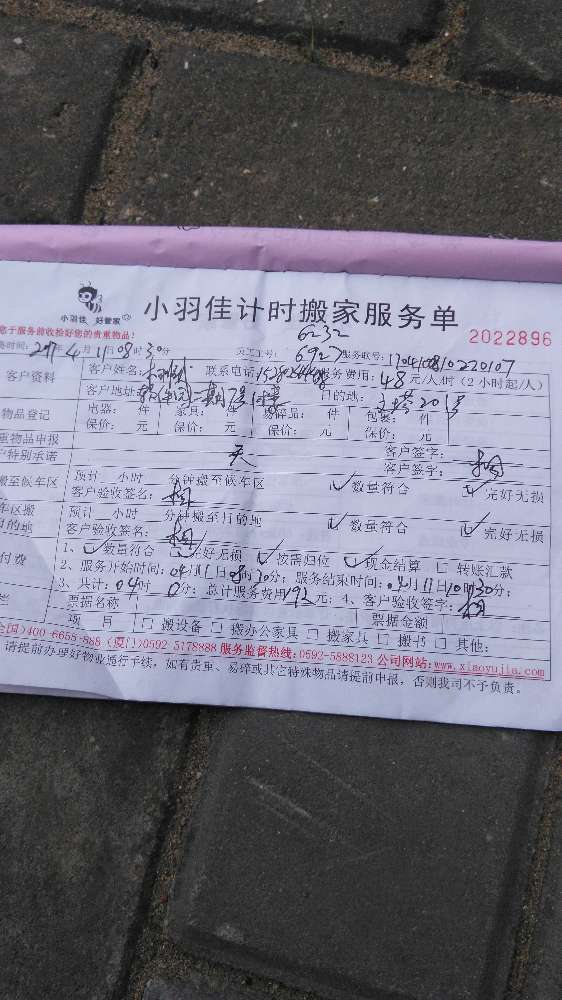 小羽佳 好管家
小羽佳计时搬家服务单
您于服务前收拾好您的贵重物品!
2022896
6232
务时间: 2017年4月11日08时30分 员工工号: 6927 服务账号: 170410810220107
客户资料 客户姓名: 联系电话: 服务费用: 48元/人/时 (2小时起/人)
客户地址: 目的地: 20号
物品登记 电器: 件 家具: 件 易碎品: 件 包装: 件
保价: 元 保价: 元 保价: 元 保价: 元
重物品申报 客户签字:
户特别承诺 无 客户签字:
搬至候车区 预计 小时 分钟搬至候车区 ✓数量符合 ✓完好无损
客户验收签名:
车区搬 预计 小时 分钟搬至目的地 ✓数量符合 ✓完好无损
目的地 客户验收签名:
付费 1、✓数量符合 ✓完好无损 ✓按需归位 ✓现金结算 □ 转账汇款
2、服务开始时间: 04月11日08时30分; 服务结束时间: 04月11日10时30分;
3、共计: 04时0分; 总计服务费用192元; 4、客户验收签字:
票据名称 票据金额
项 目 □ 搬设备 □ 搬办公家具 □ 搬家具 □ 搬书 □ 其他:
全国)400-6655-888 (厦门)0592-5178888 服务监督热线: 0592-5888123 公司网站: www.xiaoyujia.com
请提前办理好物业通行手续, 如有贵重、易碎或其它特殊物品请提前申报, 否则我司不予负责。